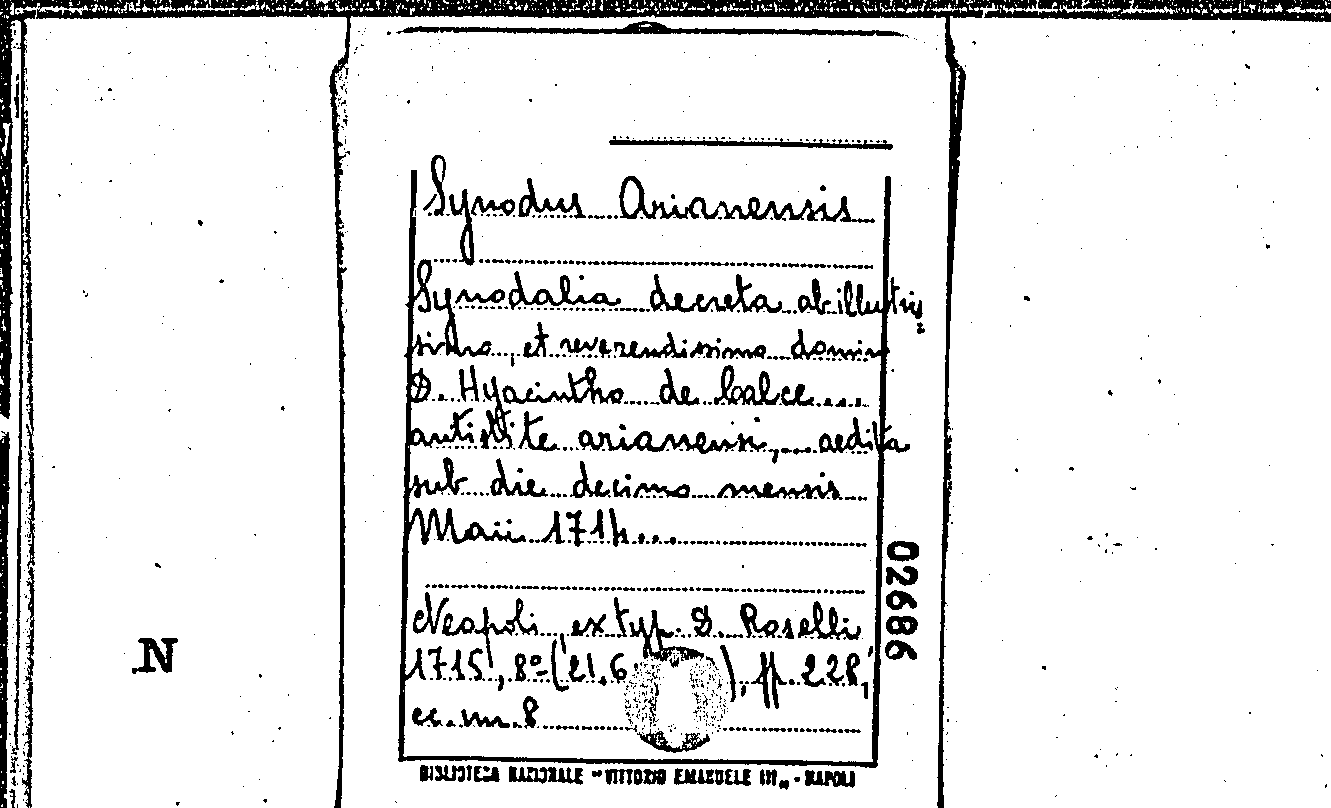 Synodus Arianensis
Synodalia decreta ab illustris„
simo, et reverendissimo domino
D. Hyacintho de Calce...
antistite arianensi,... aedita
sub die decimo mensis
Maii 1714...
Neapoli ex typ. D. Roselli
1715, 8º (21,6 ), pp. 228,
cc. nn. 8
BIBLIOTECA NAZIONALE "VITTORIO EMANUELE III„ - NAPOLI
02686
N